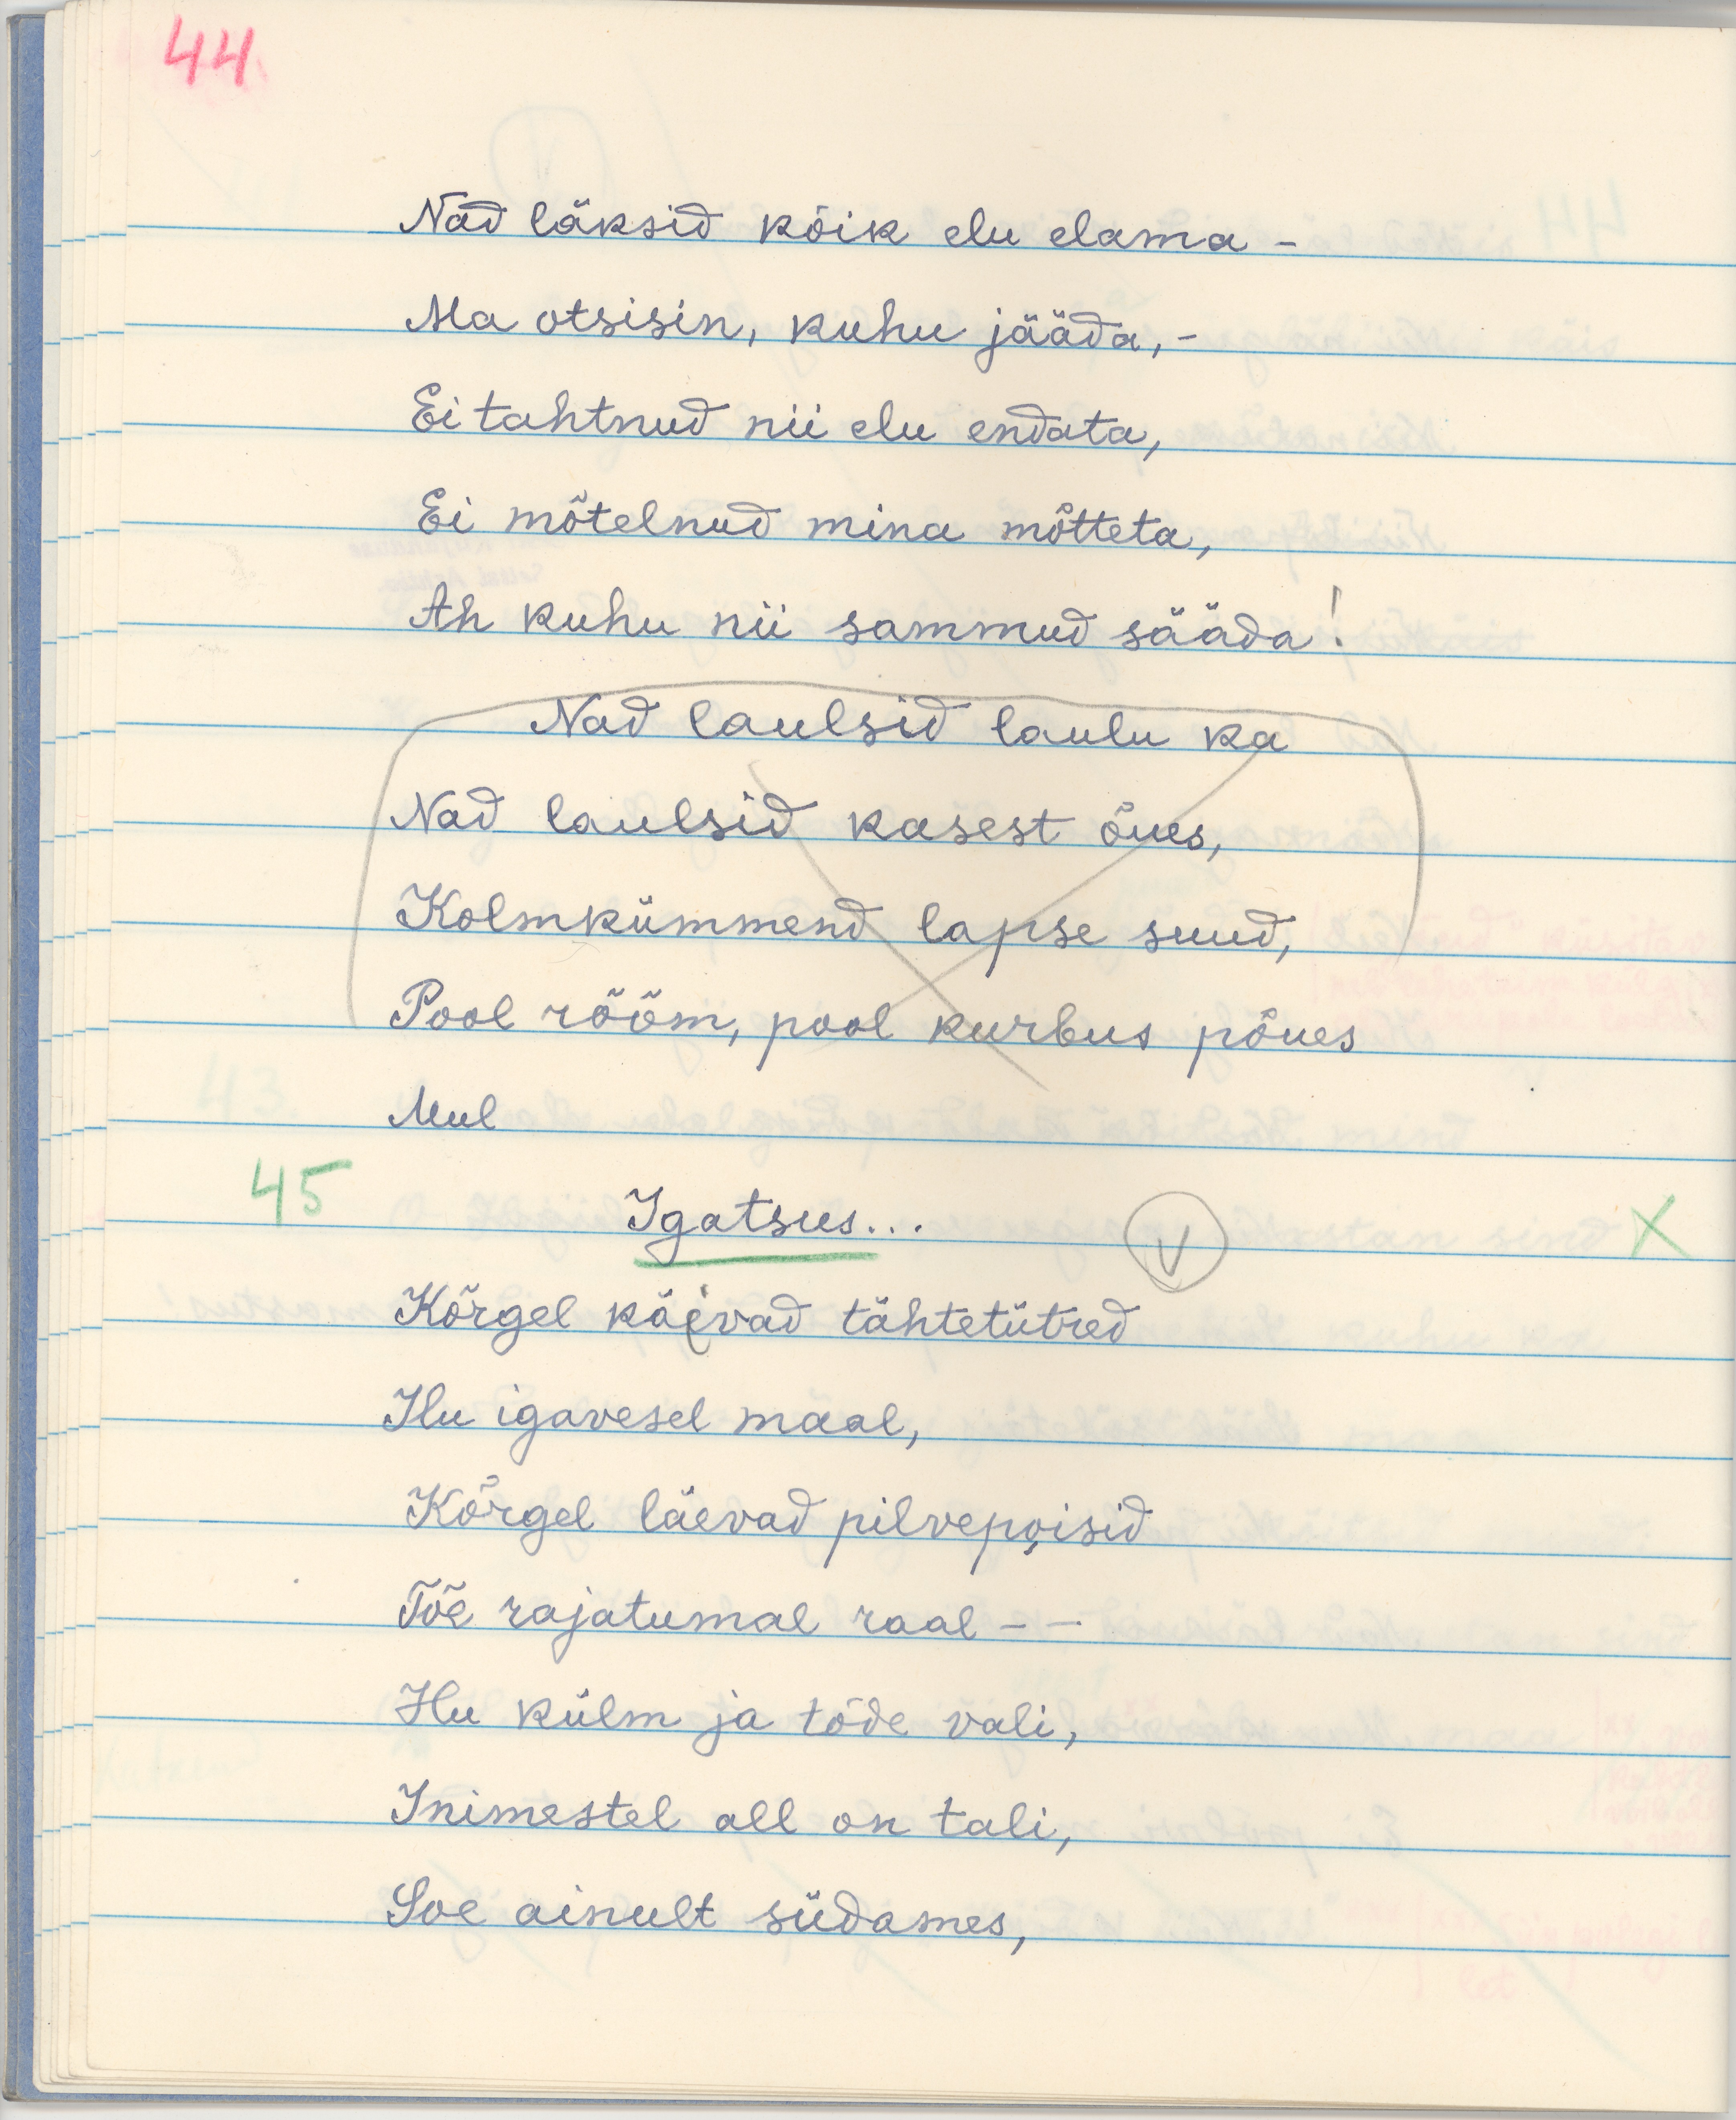 44.
Nad läksid kõik elu elama –
Ma otsisin, kuhu jääda, –
Ei tahtnud nii elu endata,
Ei mõtelnud mina mõtteta,
Ah kuhu nii sammud sääda!
Nad laulsid laulu ka
Nad laulsid kasest õues,
Kolmkümmend lapse suud,
Pool rõõm, pool kurbus põues
Mul
45 Igatsus... V X
Kõrgel käivad tähtetütred
Ilu igavesel maal,
Kõrgel läevad pilvepoisid
Tõe rajatumal raal – –
Ilu külm ja tõde vali,
Inimestel all on tali,
Soe ainult südames,